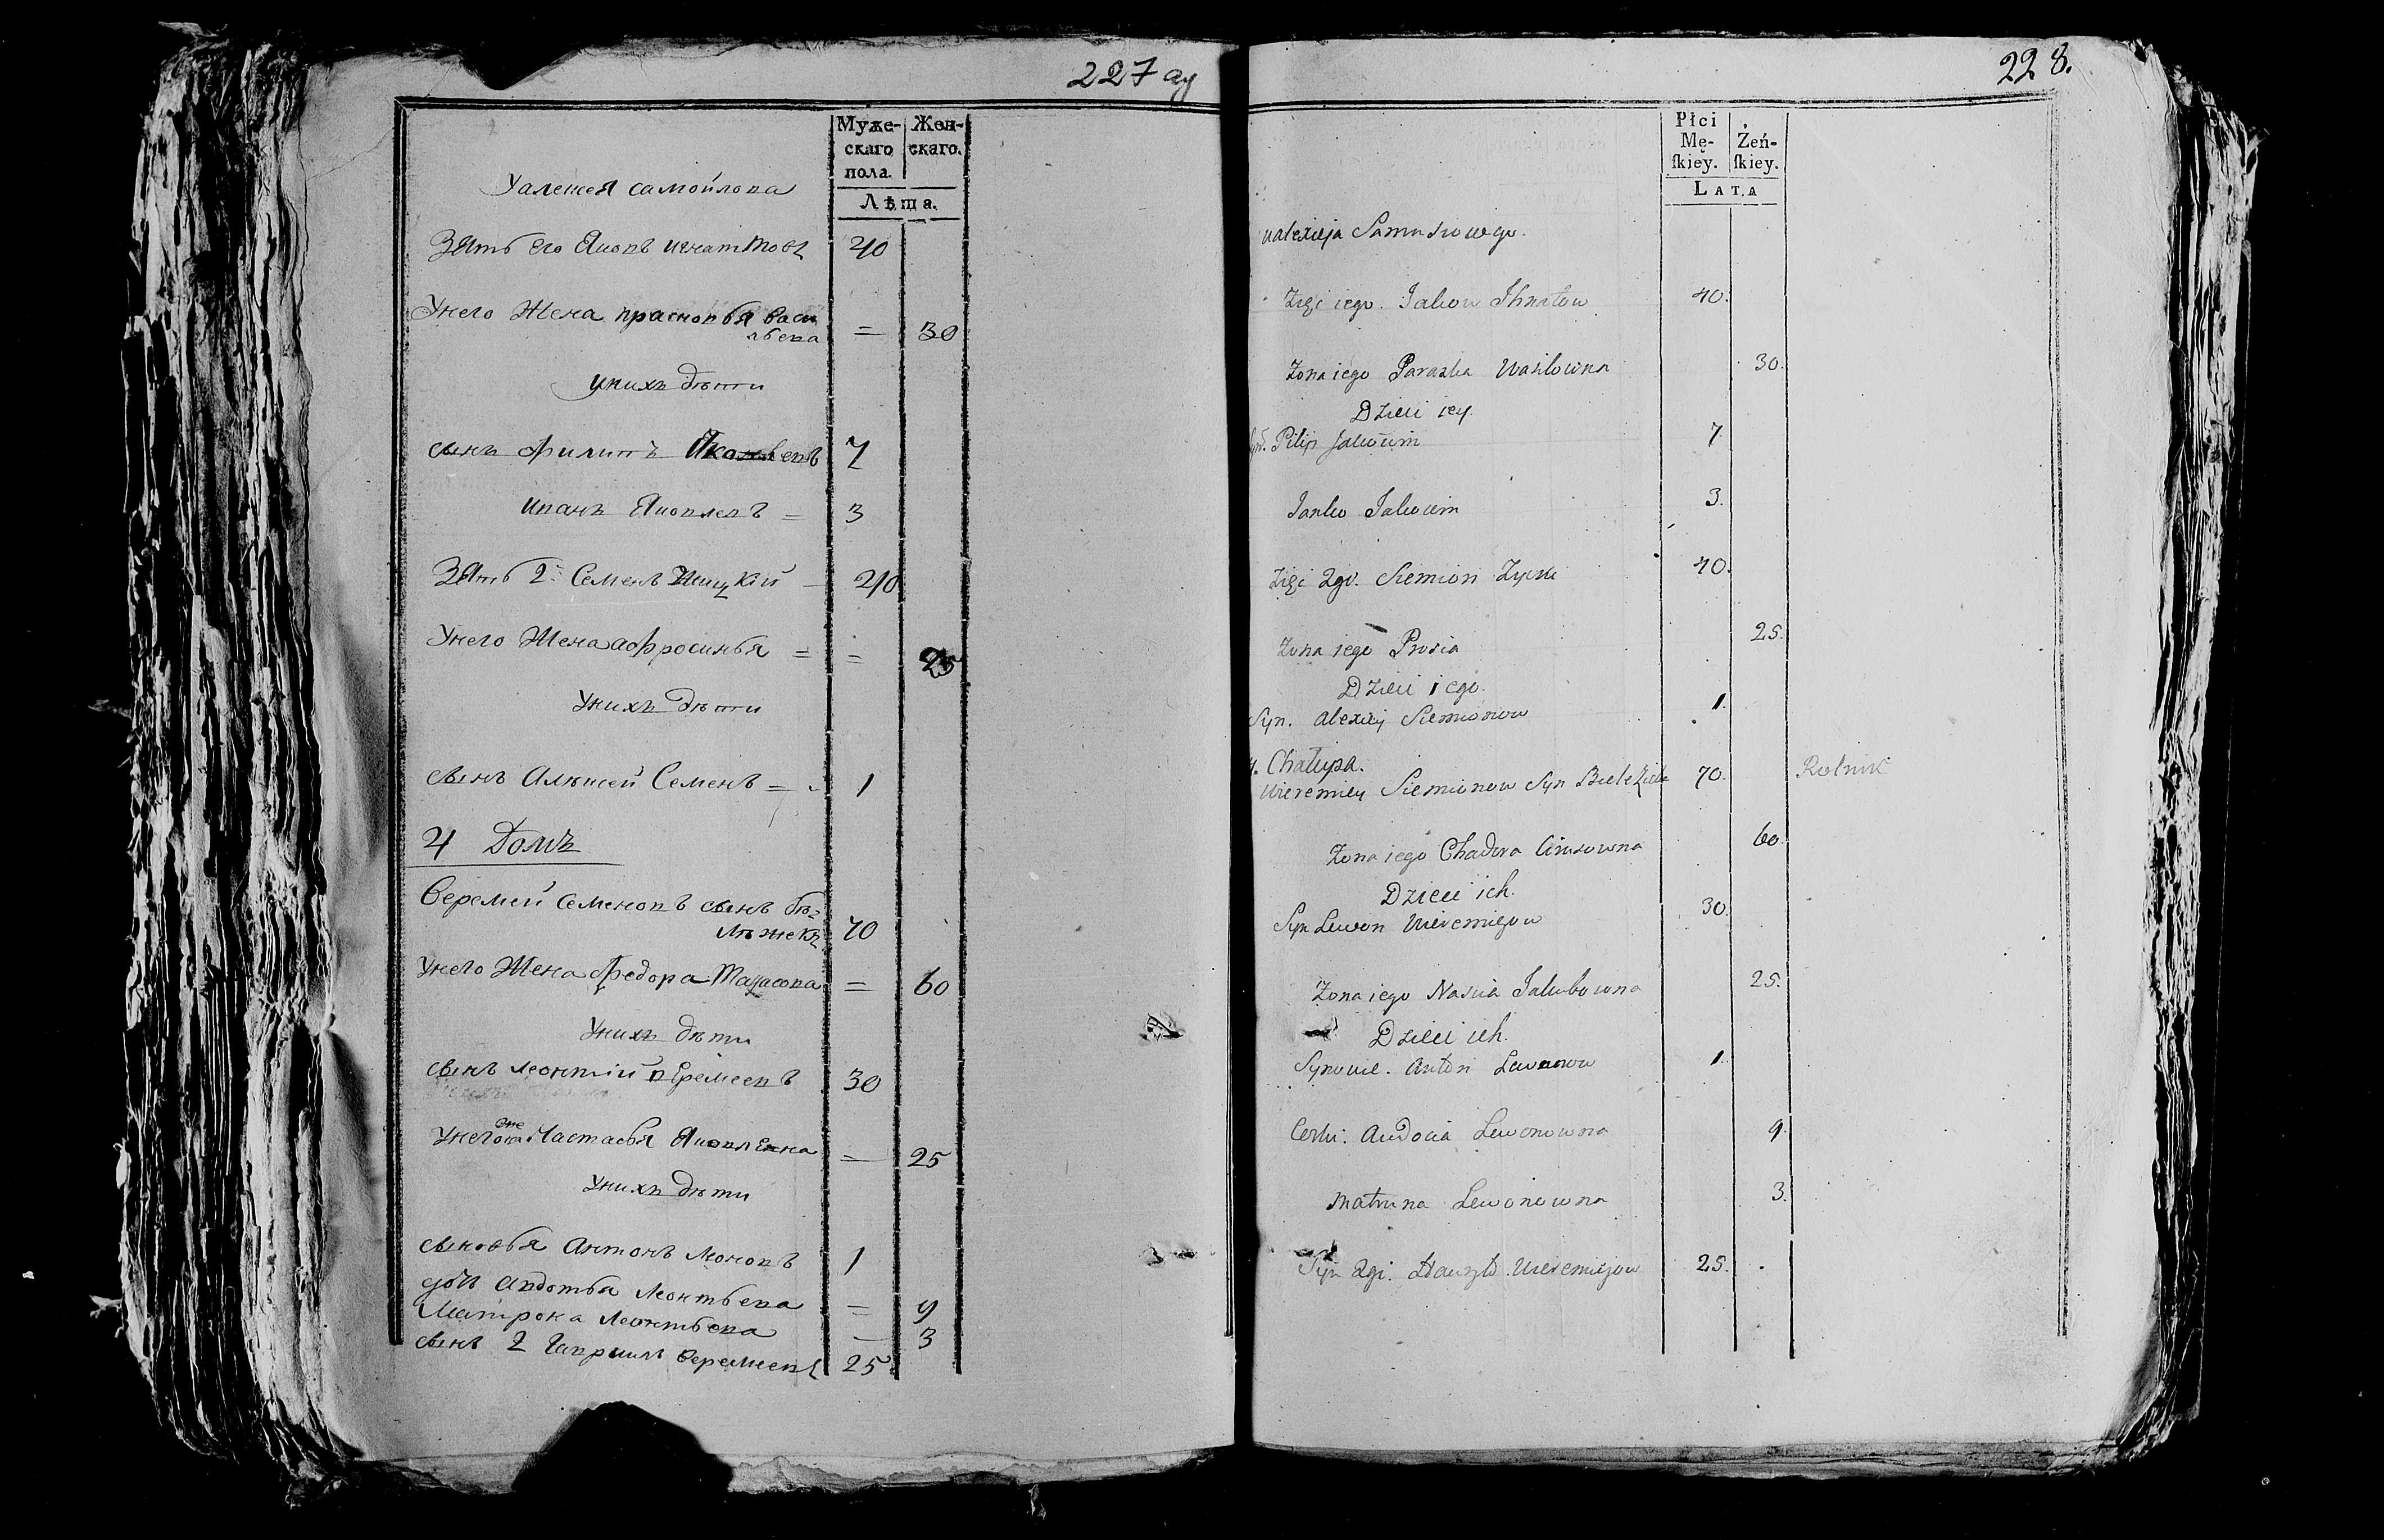 227 ау
Муже-
скаго
пола.
Жен-
скаго.
Лѣта.
Уалеѯея самойлова
Зять его Яковъ игнатовъ 40
Унего Жена прасковья васи
льева = 30
Унихъ дѣти
сынъ филипъ Яковлевъ 7
иванъ Яковлевъ = 3
Зять 2й Семенъ Жицкій 40
Унего Жена афросинья = = 25
Унихъ дѣти
сынъ Алѣѯей Семенъ = 1
4 Домъ
Веремей семеновъ сынъ бѣ=
лѣжекъ 70
Унего Жена федора = 60
Унихъ дѣти
сынъ леонтій вЕремеевъ 30
Унего жена Настасья Яковлевна = 25
Унихъ дѣти
сыновья Антонъ леоновъ 1
Авдотья леонтьева = 9
Матрона леонтьева — 3
сынъ 2 Гаврилъ веремеевъ 25
228.
Płci
Mę-
ſkiey.
Żeń-
ſkiey.
LATA
ualexieja Samusiowego.
Zięć iego. Jakow Ihnatow 40.
Zona iego Paraska Wasilowna 30.
Dzieci iey.
Syn. Pilip Jakowim 7
Janko Jakowim 3.
Zięć 2gi. Siemion Zycki 40.
Zona iego Prosia 25.
Dzieci iego.
Syn. alexiej Siemionow 1.
4. Chałupa.
Wieremiey Siemionow Syn 70. Rolnik
Zona iego Chadora 60.
Dzieci ich.
Syn Lewon Wieremiejow 30.
Zona iego Nascia Jakubowna 25.
Dzieci ich.
Synowie. Anton Lewonow 1.
Corki. Audocia Lewonowna 9.
Matruna Lewonowna 3.
Syn 2gi. Hauryło Wieremiejow 25.